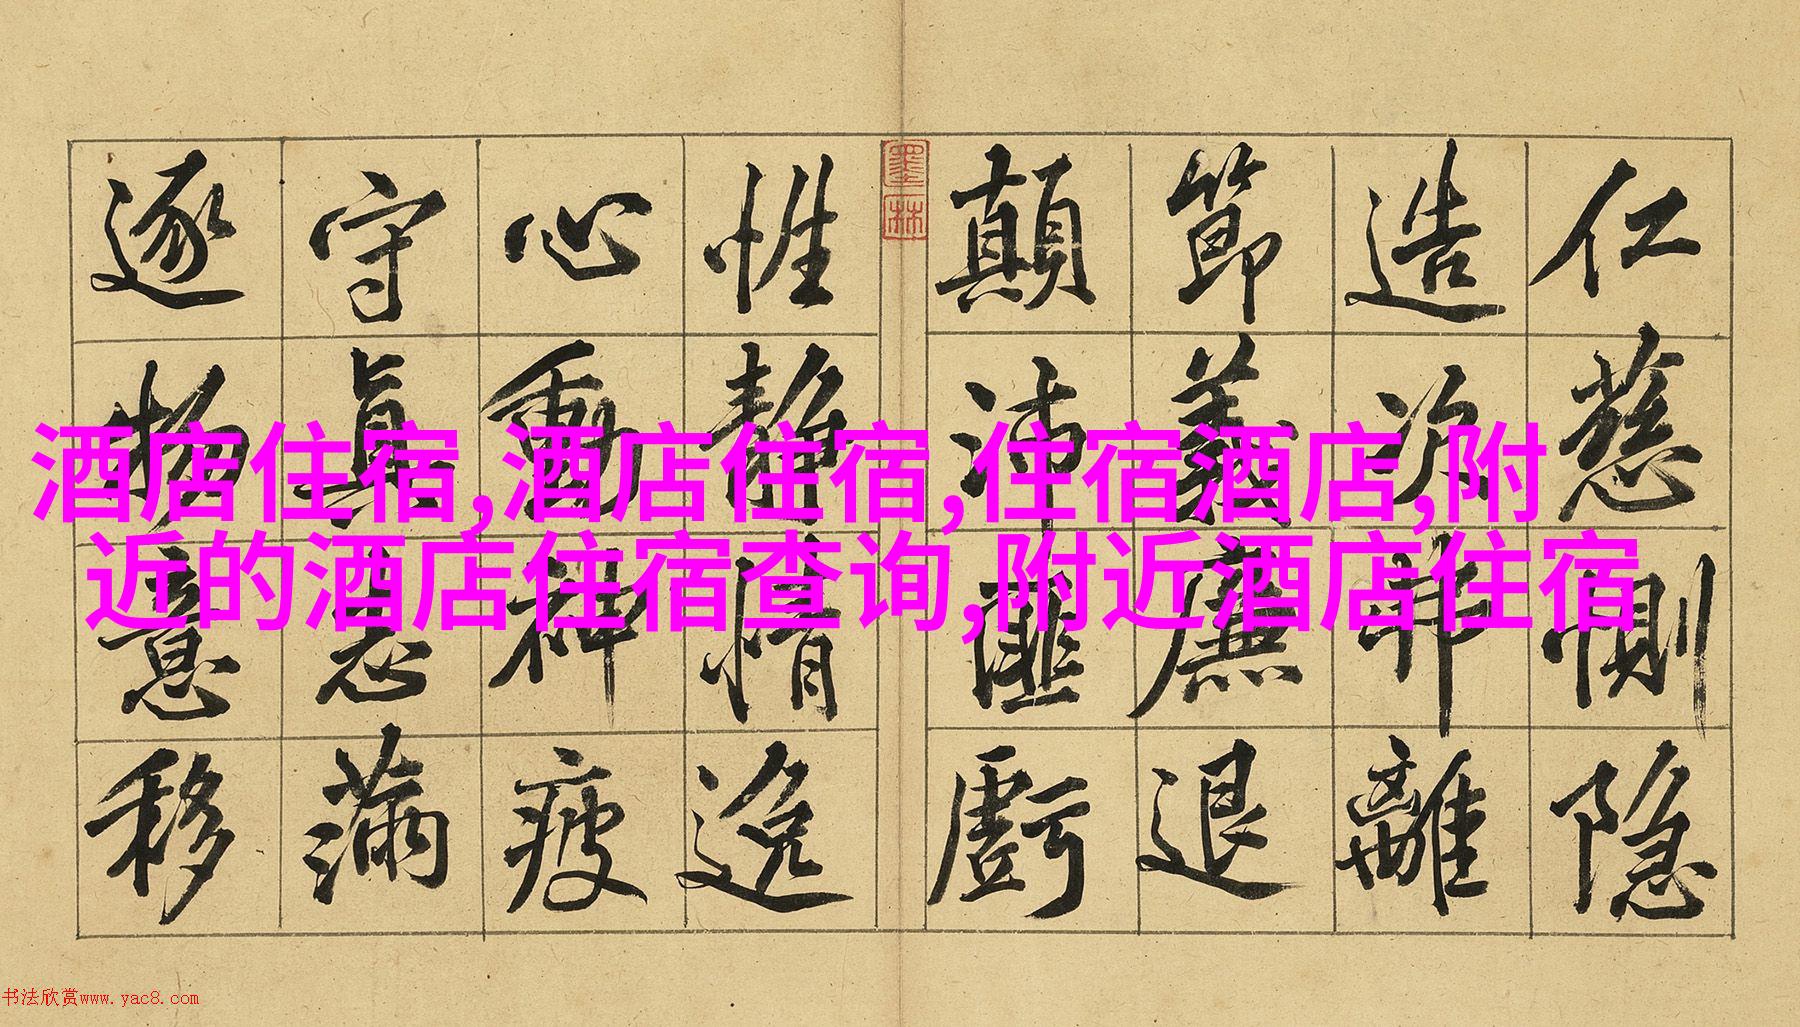 仁慈惻隐
造次弗離
節義廉退
顛沛匪虧
墨林
性静情逸
心動神疲
守真志滿
逐物意移
酒店住宿,酒店住宿,住宿酒店,附
近的酒店住宿查询,附近酒店住宿
书法欣赏www.yac8.com